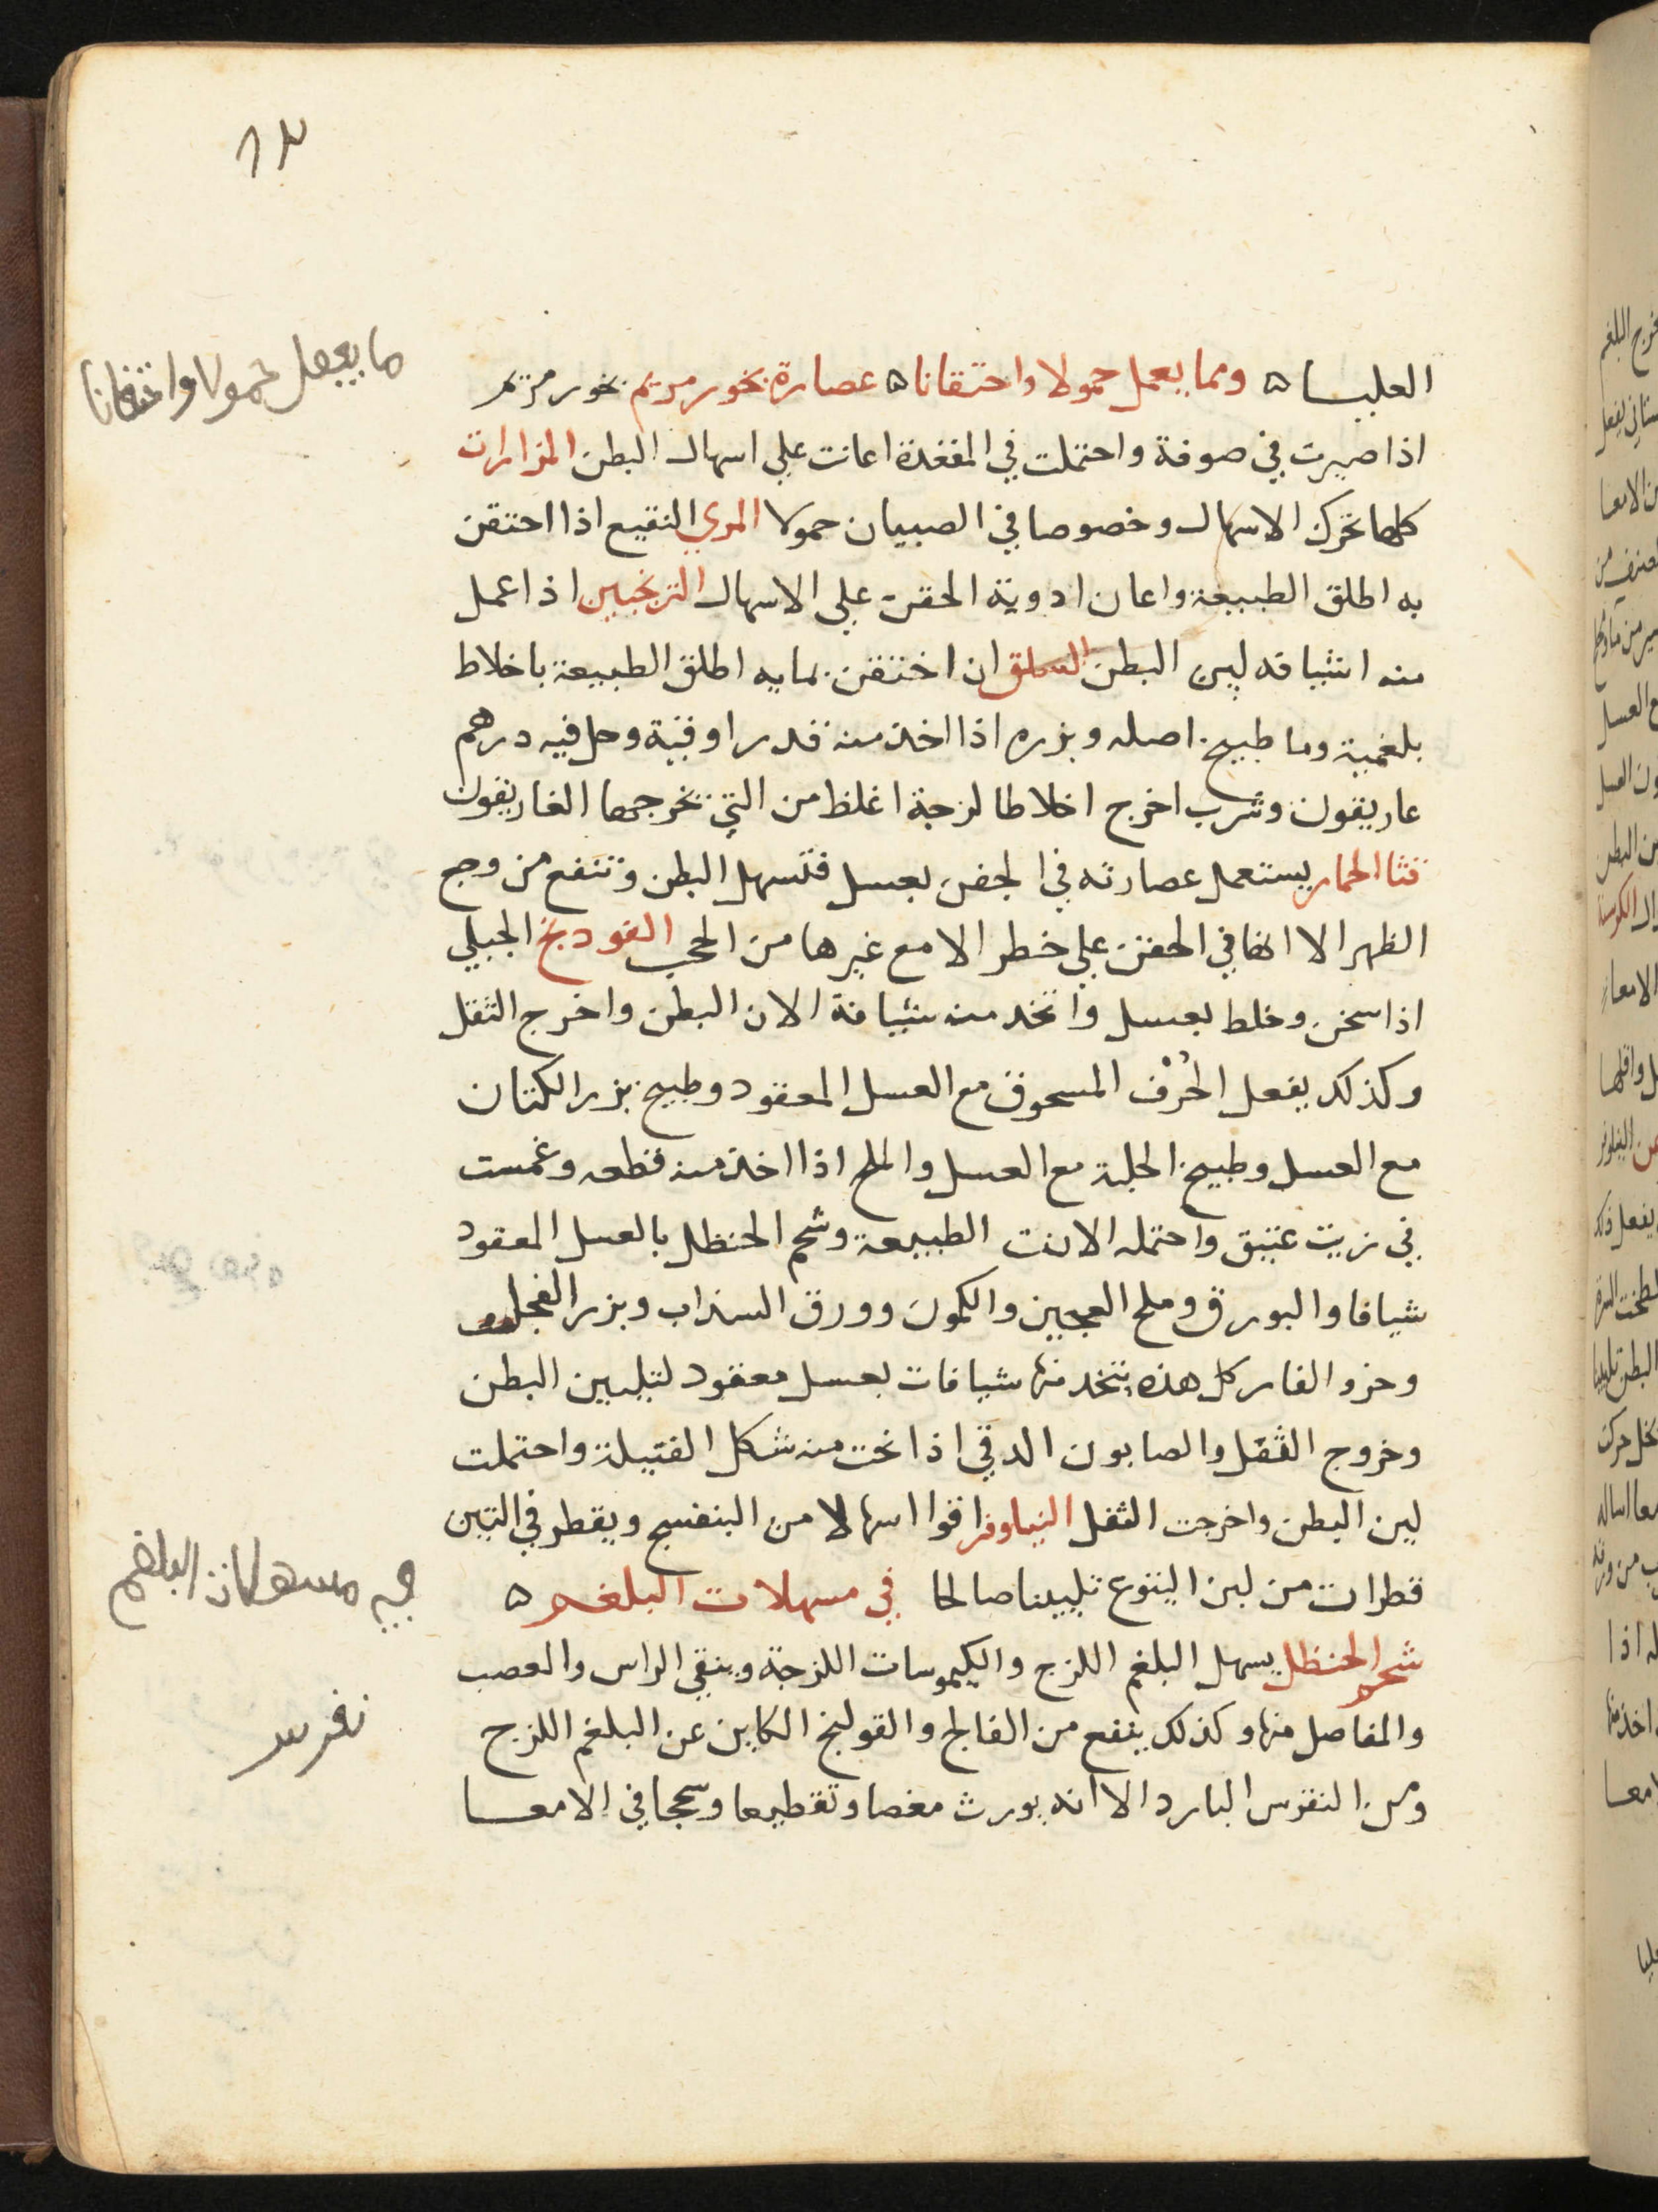 ١٣
العليا ۵ ومما يعمل حمولا واحتقانا ۵ عصارة بخور مريم بخور مريم
اذا صيرت في صوفة واحتملت في المقعدة اعانت علي اسهال البطن المزارات
كلها تحرك الاسهال وخصوصا في الصبيان حمولا المري النقيع اذا احتقن
به اطلق الطبيعة واعان ادوية الحقن علي الاسهال الترنجبين اذا عمل
منه اشيافه لين البطن السلق ان احتقن بمايه اطلق الطبيعة باخلاط
بلغمية وما طبيخ اصله وبزره اذا اخذ منه قدر اوقية وحل فيه درهم
غاريقون وشرب اخرج اخلاطا لزجة اغلظ من التي تخرجها الغاريقون
قثا الحمار يستعمل عصارته في الحقن بعسل فتسهل البطن وتنفع من وجع
الظهر الا انها في الحقن علي خطر الا مع غيرها من الحب الفودنج الجبلي
اذا سخن وخلط بعسل واتخذ منه شيافة الان البطن واخرج الثفل
وكذلك يفعل الحُرْف المسحوق مع العسل المعقود وطبيخ بزر الكتان
مع العسل وطبيخ الحلبة مع العسل والملح اذا اخذ منه قطعه وغمست
في زيت عتيق واحتمله الانت الطبيعة وشحم الحنظل بالعسل المعقود
شيافا والبورق وملح العجين والكمون وورق السذاب وبزر الفجل
وخرو الفار كل هذه يتخذ منها شيافات بعسل معقود لتليين البطن
وخروج الثفل والصابون الدقي اذا نحت منه شكل الفتيلة واحتملت
لين البطن واخرجت الثفل النيلوفر اقوا اسهالا من البنفسج ويقطر في التين
قطرات من لبن اليتوع تليينا صالحا في مسهلات البلغم ۵
شحم الحنظل يسهل البلغم اللزج والكيموسات اللزجة وينقي الراس والعصب
والمفاصل منها وكذلك ينفع من الفالج والقولنج الكاين عن البلغم اللزج
ومن النقرس البارد الا انه يورث مغصا وتقطيعا وسحجا في الامعا
ما يعمل حمولا واحتقانا
في مسهلات البلغم
نقرس